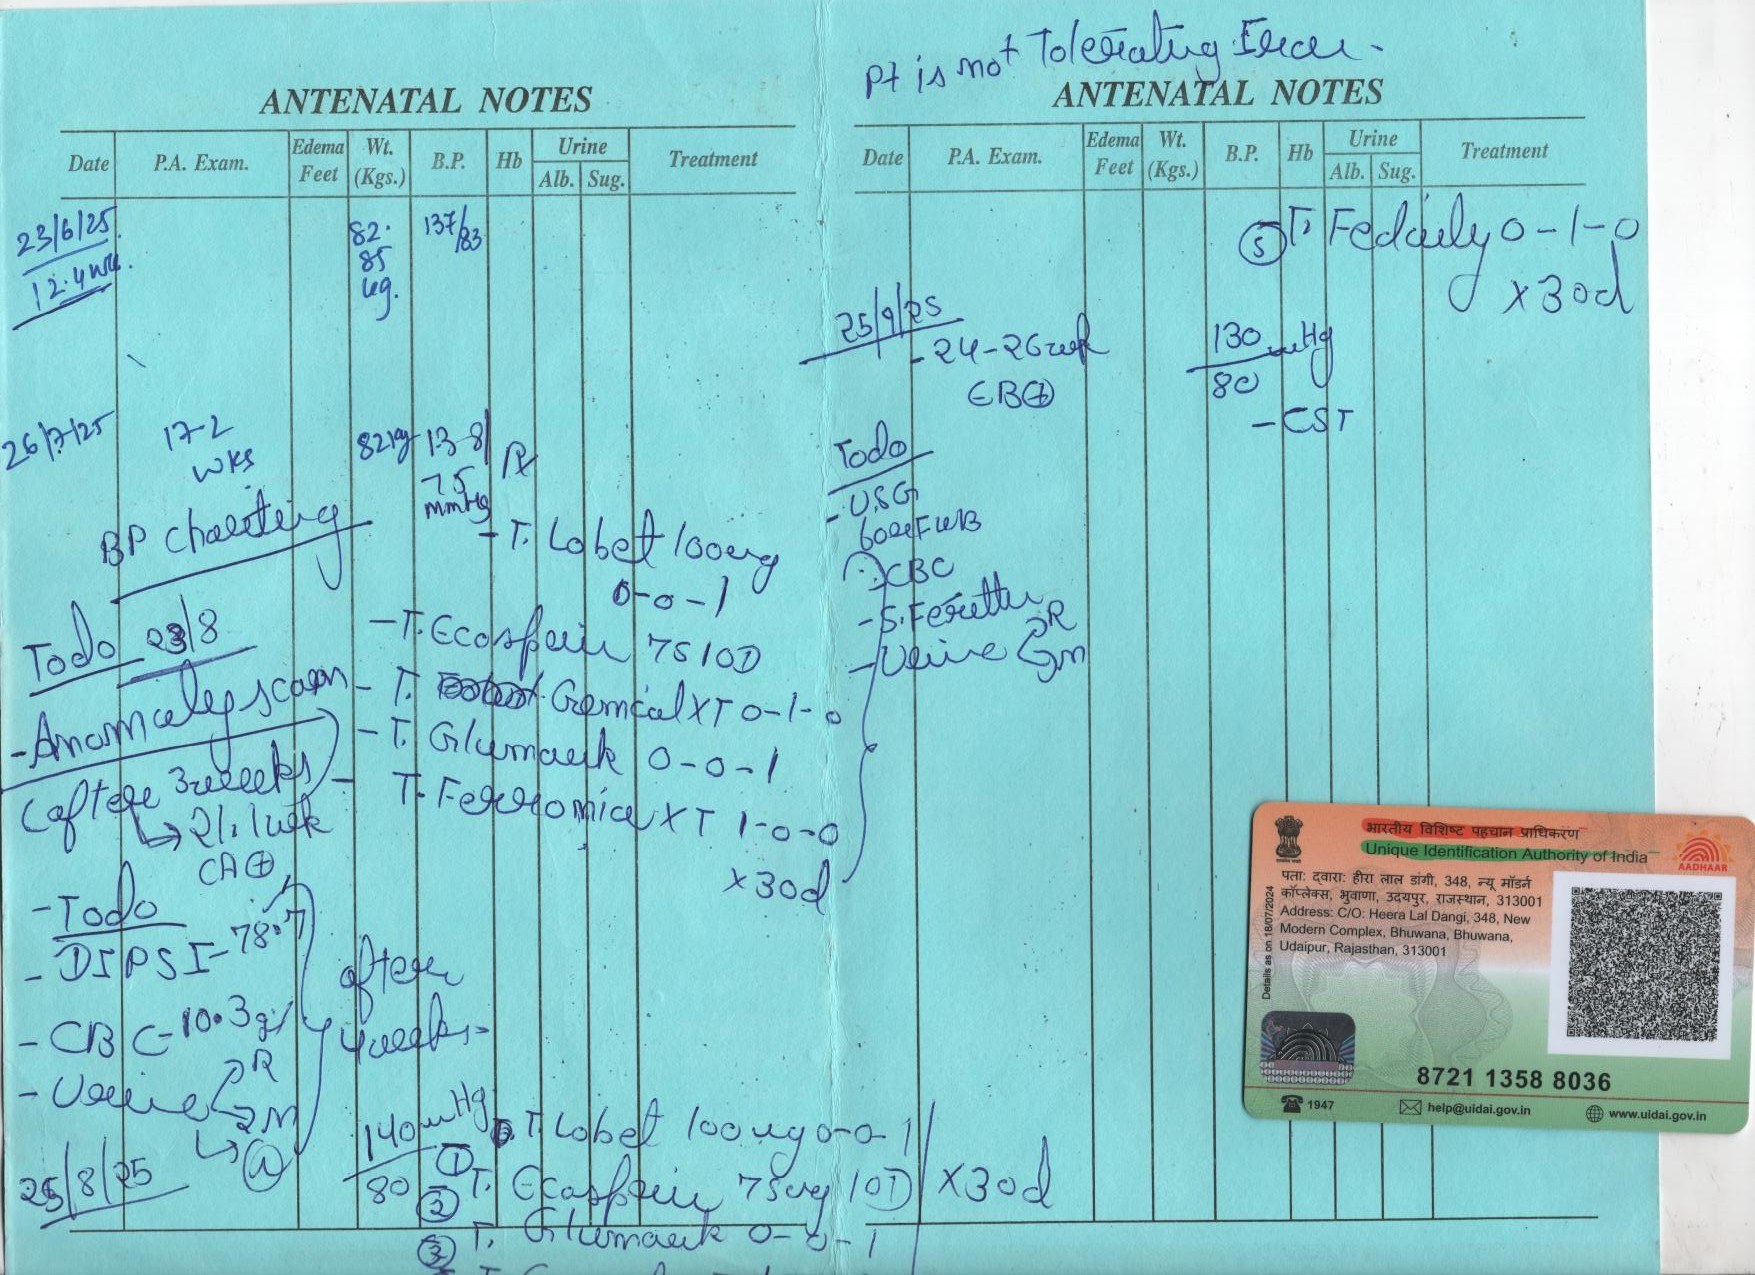 Pt is not Tolerating
ANTENATAL NOTES
Date P.A. Exam. Edema Feet Wt. (Kgs.) B.P. Hb Urine Alb. Sug. Treatment
23/6/25
12.4 wk.
82.
85
kg.
137/83
26/7/25
17-2
wks
82kg
138/
75
mmHg
Rx
BP charting
- T. Lobet 100mg
0-0-1
Todo 23/8
- T. Ecosprin 75 1OD
- Anomaly scan
- T. Gemcal XT 0-1-0
- T. Glumauk 0-0-1
(after 3weeks)
- T. Ferronica XT 1-0-0
x30d
CA⊕
- Todo
- DIPSI - 78.7
- CBC - 10.3
- Urine R
M
after
4weeks
25/8/25
140 mmHg
80
① T. Lobet 100mg 0-0-1
② T. Ecosprin 75mg 1OD
③ T. Glumauk 0-0-1
x30d
ANTENATAL NOTES
Date P.A. Exam. Edema Feet Wt. (Kgs.) B.P. Hb Urine Alb. Sug. Treatment
⑤ T. Fedaily 0-1-0
x30d
25/9/25
- 24-26 wk
130 mmHg
80
- CST
Todo
- USG
for FWB
CBC
- S. Ferittin
- Urine R
M
भारतीय विशिष्ट पहचान प्राधिकरण
Unique Identification Authority of India
AADHAAR
पता: द्वारा: हीरा लाल डांगी, 348, न्यू मॉडर्न
कॉप्लेक्स, भुवाणा, उदयपुर, राजस्थान, 313001
Address: C/O: Heera Lal Dangi, 348, New
Modern Complex, Bhuwana, Bhuwana,
Udaipur, Rajasthan, 313001
Details as on 18/07/2024
8721 1358 8036
1947 help@uidai.gov.in www.uidai.gov.in